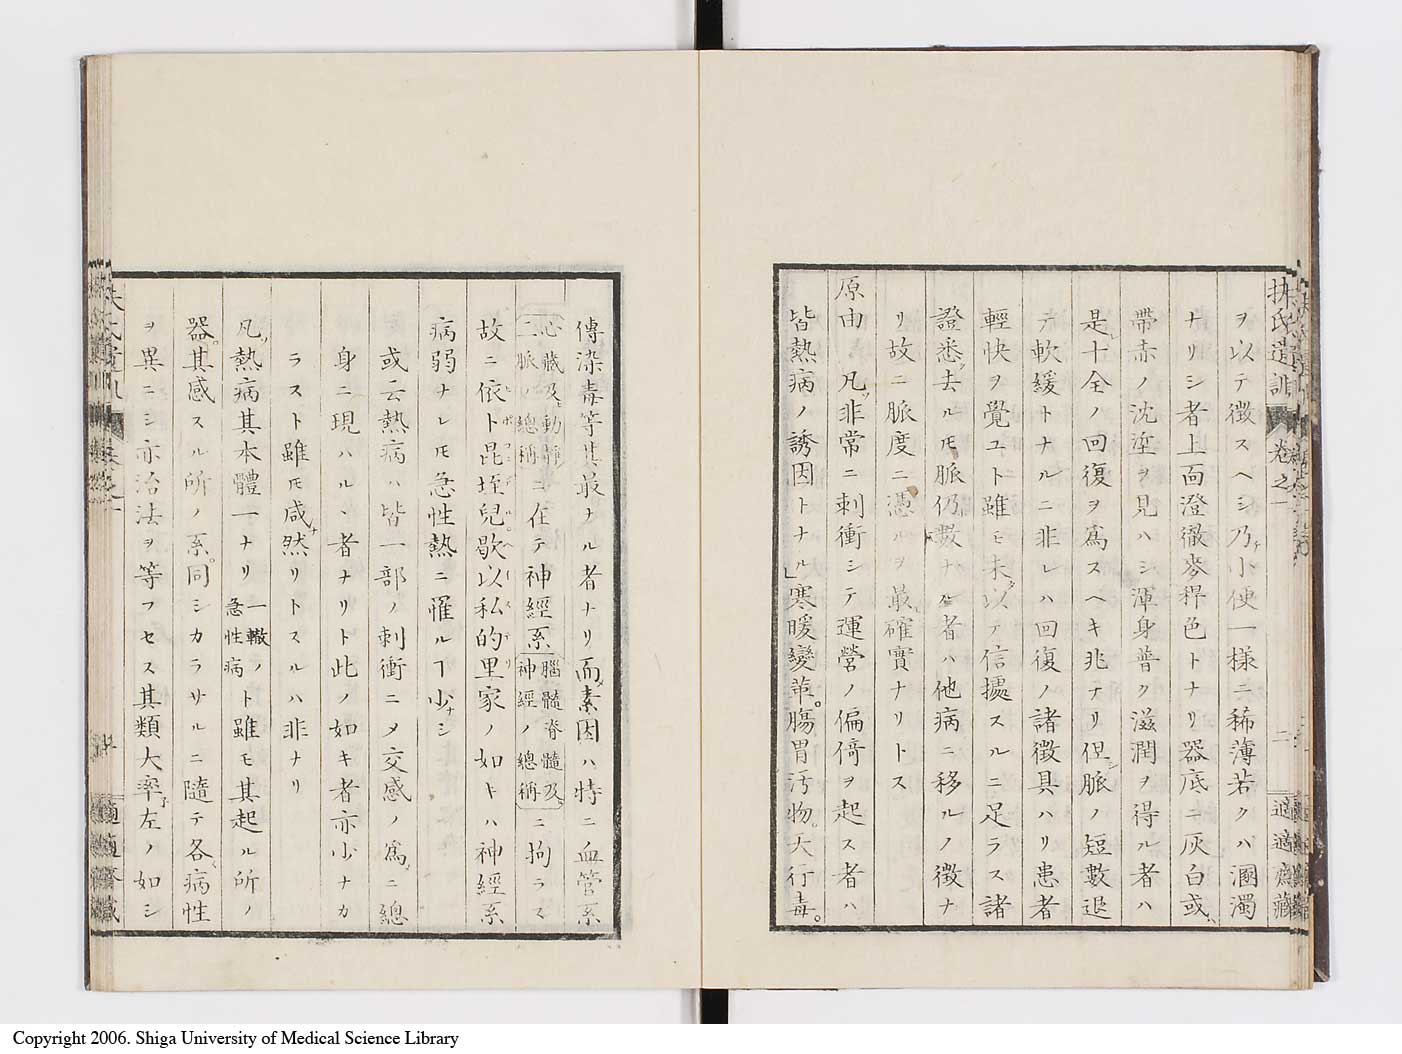 扶氏遺訓 卷之一 二 適適齋藏
ヲ以テ徴スヘシ乃チ小便一樣ニ稀薄若クバ溷濁
ナリシ者上面澄徹麥稈色トナリ器底ニ灰白或ハ
帶赤ノ沈垽ヲ見ハシ渾身普ク滋潤ヲ得ル者ハ
是レ十全ノ回復ヲ爲スヘキ兆ナリ但シ脈ノ短數退
テ軟緩トナルニ非レハ回復ノ諸徴具ハリ患者
輕快ヲ覺ユト雖モ未タ以テ信據スルニ足ラス諸
證悉ク去ルモ脈仍數ナル者ハ他病ニ移ルノ徴ナ
リ故ニ脈度ニ憑ルヲ最モ確實ナリトス
原由 凡ソ非常ニ刺衝シテ運營ノ偏倚ヲ起ス者ハ
皆熱病ノ誘因トナル」寒暖變革。腸胃汚物。大行毒。
傳染毒等其最ナル者ナリ而メ素因ハ特ニ血管系
心臓及ヒ動靜二脈ノ總稱ニ在テ神經系腦髓脊髓及ヒ神經ノ總稱ニ拘ラス
故ニ依ト昆垤兒歇以私的里家ノ如キハ神經系
病弱ナレモ急性熱ニ罹ルヿ少ナシ
或云熱病ハ皆一部ノ刺衝ニメ交感ノ爲メニ總
身ニ現ハルヽ者ナリト此ノ如キ者亦少ナカ
ラスト雖モ咸ナ然リトスルハ非ナリ
凡ソ熱病其本體一ナリ一轍ノ急性病ト雖モ其起ル所ノ
器。其感スル所ノ系。同シカラサルニ隨テ各々病性
ヲ異ニシ亦治法ヲ等フセス其類大率子左ノ如シ
Copyright 2006. Shiga University of Medical Science Library